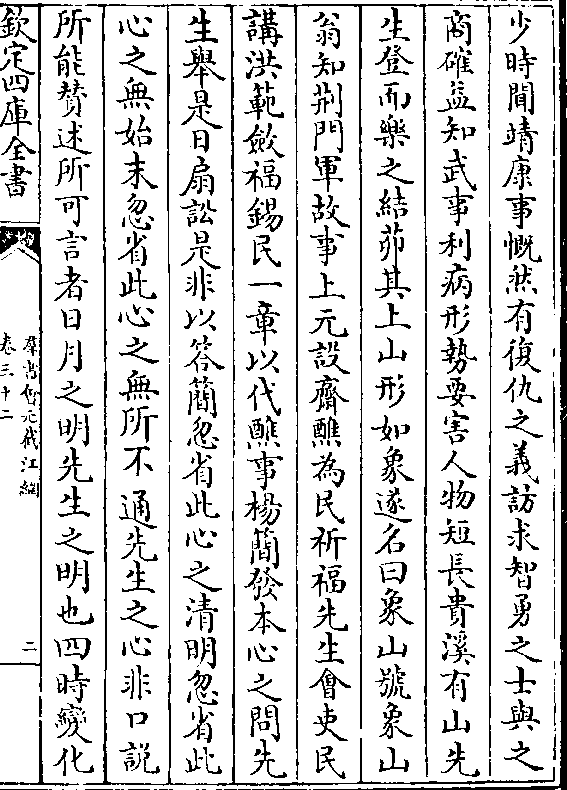 少時聞靖康事慨然有復仇之義訪求智勇之士與之
商確益知武事利病形勢要害人物短長貴溪有山先
生登而樂之結茆其上山形如象遂名曰象山號象山
翁知荆門軍故事上元設齋醮為民祈福先生會吏民
講洪範斂福錫民一章以代醮事楊簡發本心之問先
生舉是日扇訟是非以答簡忽省此心之清明忽省此
心之無始末忽省此心之無所不通先生之心非口説
所能賛述所可言者日月之明先生之明也四時變化
欽定四庫全書
羣書㑹元截江網
卷三十二
二